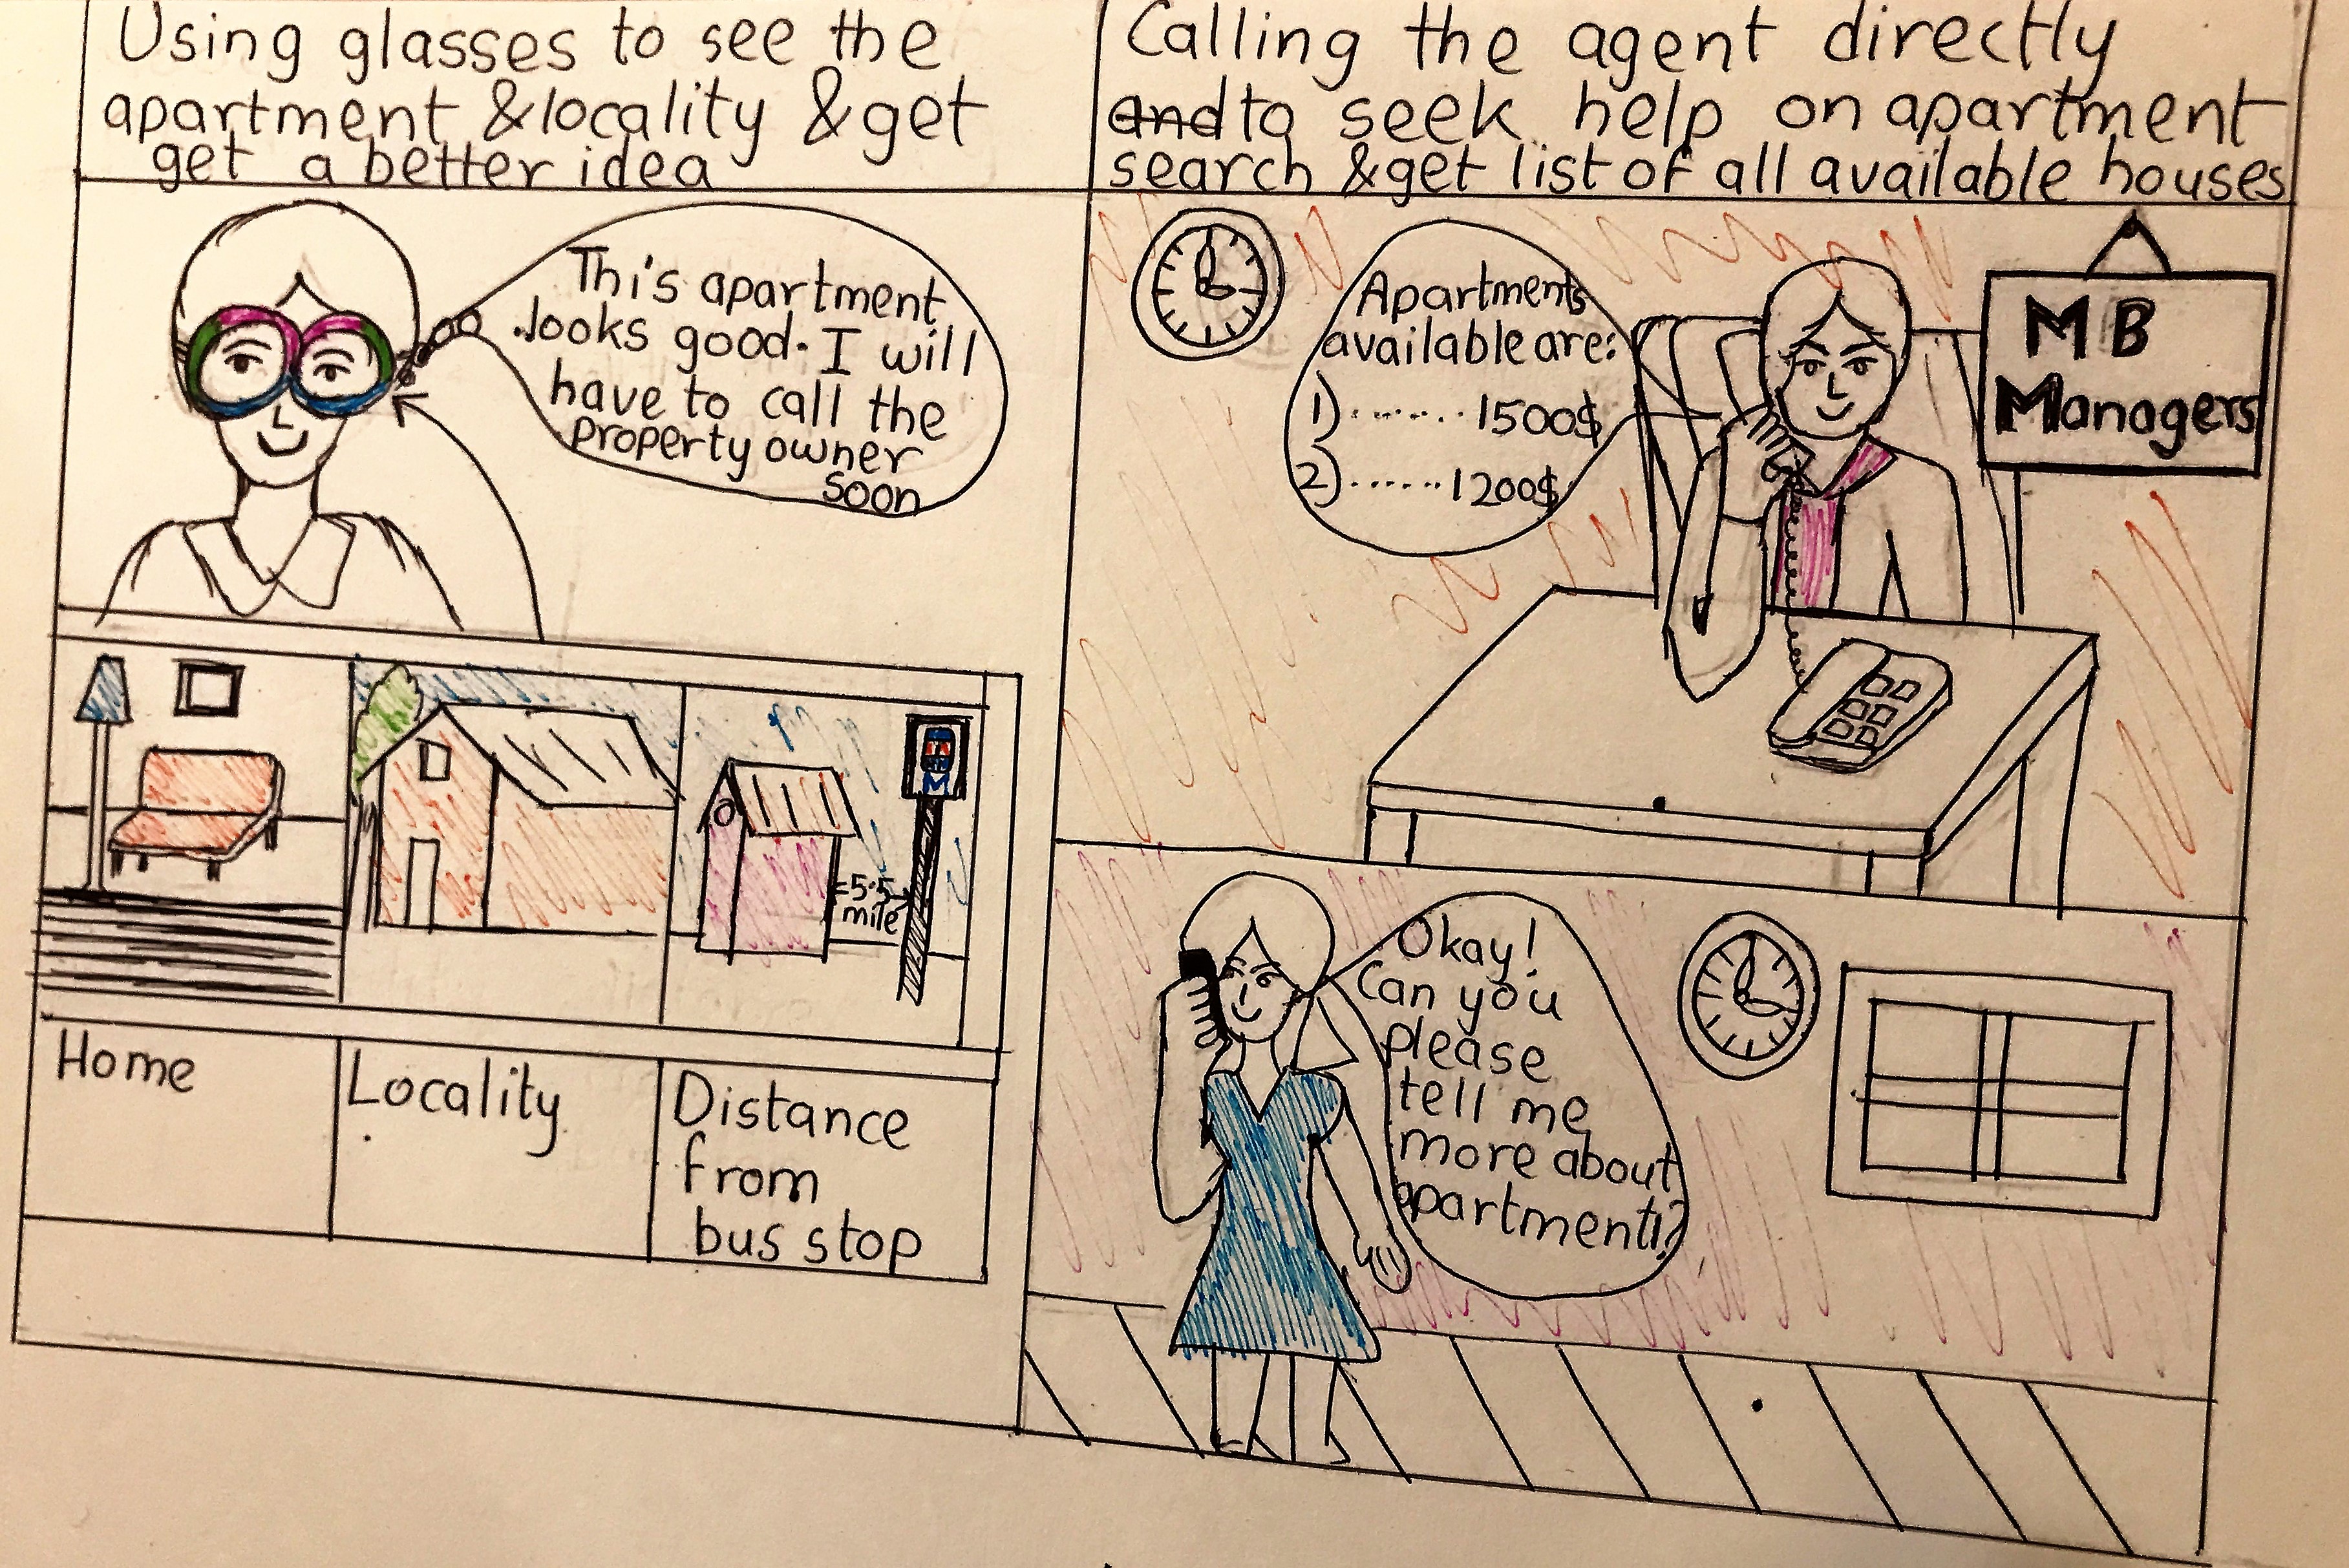 Using glasses to see the
apartment & locality & get
get a better idea
This apartment
looks good. I will
have to call the
property owner
soon
Home
Locality
Distance
from
bus stop
5.5
mile
M
Calling the agent directly
and to seek help on apartment
search & get list of all available houses
Apartments
available are:
1)........1500$
2)......1200$
MB
Managers
Okay!
Can you
please
tell me
more about
apartment1?